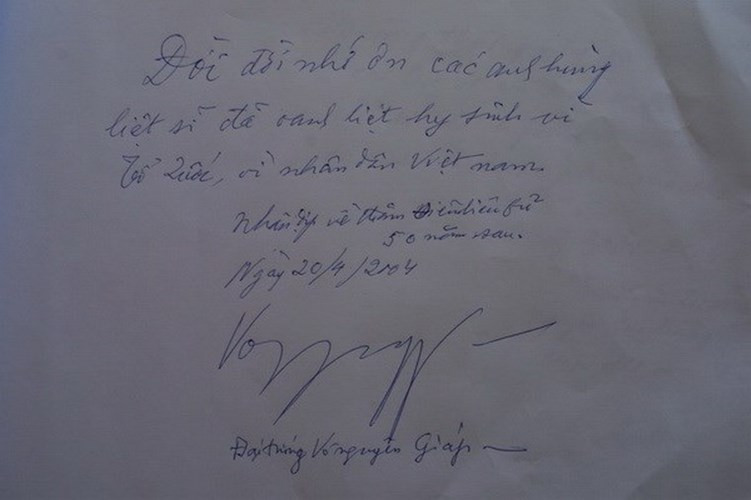 Đời đời nhớ ơn các anh hùng
liệt sĩ đã oanh liệt hy sinh vì
Tổ Quốc, vì nhân dân Việt nam.
Nhân dịp về thăm Điện biên phủ
50 năm sau.
Ngày 20/4/2004
Đại tướng Võ nguyên Giáp